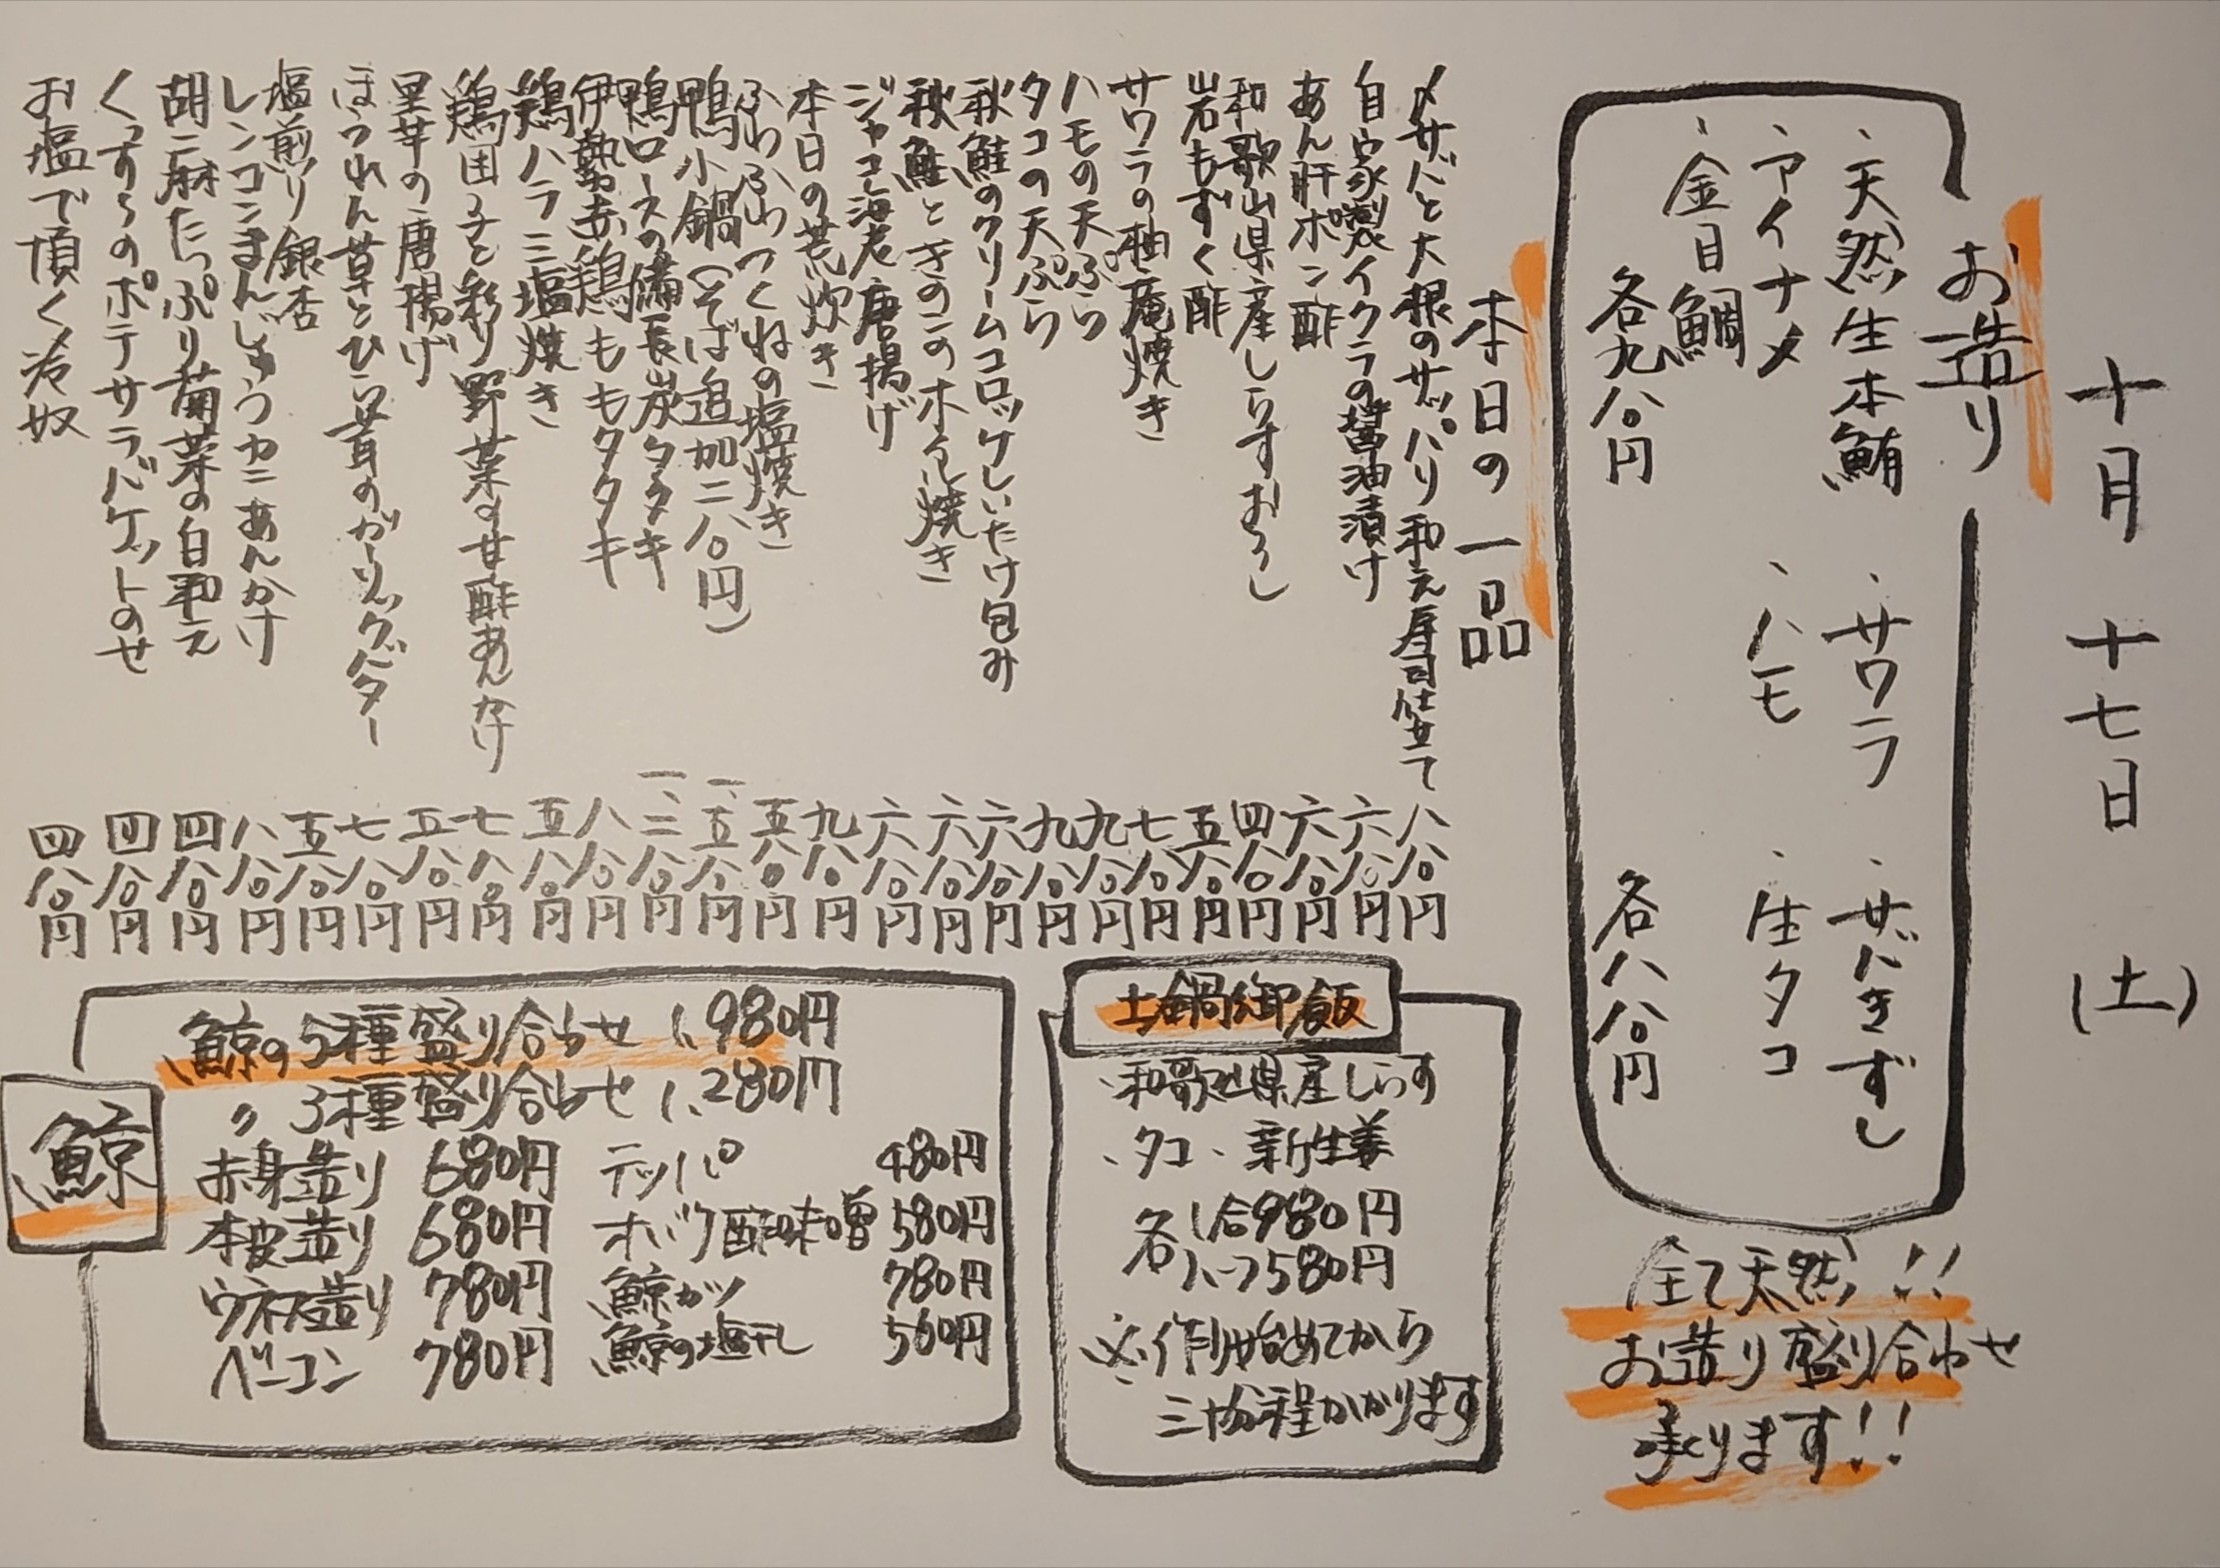 十月十七日(土)
お造り
・天然生本鮪 ・サワラ ・サバきずし
・アイナメ ・ハモ ・生タコ
・金目鯛
各九八〇円 各八八〇円
全て天然!!
お造り盛り合わせ
承ります!!
本日の一品
〆サバと大根のサッパリ和え寿司仕立て 八八〇円
自家製イクラの醤油漬け 六八〇円
あん肝ポン酢 六八〇円
和歌山県産しらすおろし 四八〇円
岩もずく酢 五八〇円
サワラの柚庵焼き 七八〇円
ハモの天ぷら 九八〇円
タコの天ぷら 九八〇円
秋鮭のクリームコロッケしいたけ包み 六八〇円
秋鮭ときのこのホイル焼き 六八〇円
ジャコ海老唐揚げ 六八〇円
本日の荒炊き 九八〇円
ふわふわつくねの塩焼き 五八〇円
鴨小鍋(そば追加二八〇円) 一、五八〇円
鴨ロースの備長炭タタキ 一、二八〇円
伊勢赤鶏ももタタキ 八八〇円
鶏ハラミ塩焼き 五八〇円
鶏団子と彩り野菜の甘酢あんかけ 七八〇円
里芋の唐揚げ 五八〇円
ほうれん草とひら茸のガーリックバター 七八〇円
塩煎り銀杏 五八〇円
レンコンまんじゅうカニあんかけ 八八〇円
胡麻たっぷり菊菜の白和え 四八〇円
くずらのポテサラバケットのせ 四八〇円
お塩で頂く冷奴 四八〇円
土鍋御飯
・和歌山県産しらす
・タコ ・新生姜
各1合980円
各ハーフ580円
※作り始めてから
三十分程かかります
鯨
鯨の5種盛り合わせ 1,980円
〃 3種盛り合わせ 1,280円
赤身造り 680円 テッパ 480円
本皮造り 680円 オバケ酢味噌 580円
ウネス造り 780円 鯨カツ 780円
ベーコン 780円 鯨の塩干し 560円